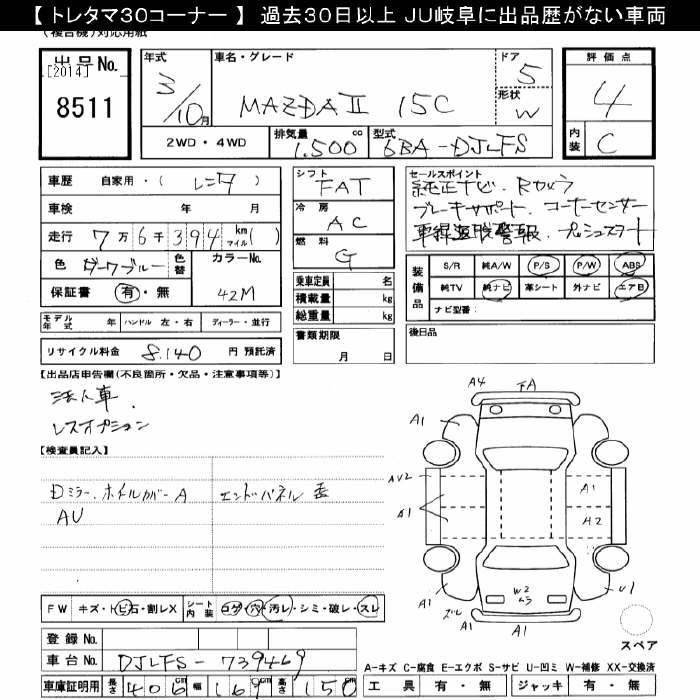 【 トレタマ30コーナー 】 過去30日以上 JU岐阜に出品歴がない車両
(複合機)対応用紙
出品No.
[2014]
8511
年式
3/10月
車名・グレード
MAZDA II 15C
ドア
5
形状
W
評価点
4
内装
C
2WD・4WD
排気量
1.500 cc
型式
6BA-DJLFS
車歴 自家用・( レンタ )
車検 年 月
走行 7万6千394 km マイル ( )
色 ダークブルー 色替 カラーNo.
42M
保証書 有・無
モデル年式 年 ハンドル 左・右 ディーラー・並行
リサイクル料金 8.140 円 預託済
シフト
FAT
冷房
AC
燃料
G
乗車定員 名
積載量 kg
総重量 kg
書類期限
月 日
セールスポイント
純正ナビ. Rカメラ
ブレーキサポート. コーナーセンサー
車線逸脱警報. プッシュスタート
装備品
S/R 純A/W P/S P/W ABS
純TV 純ナビ 革シート 外ナビ エアB
ナビ型番:
後日品
【出品店申告欄(不良箇所・欠品・注意事項等)】
法人車.
レスオプション
【検査員記入】
Dミラー. ホイルカバーA
AU
エンドパネル 歪
A4 FA
A1 A1
AU2
A1
A1
A2
W2
ムラ
A1 ズレ A1 A1 U1
FW キズ・トビ石・割レX シート内装 コゲ・穴・汚レ・シミ・破レ・スレ
登録No.
車台No. DJLFS-739469
車庫証明用 長さ 406cm 幅 169cm 高さ 150cm
スペア
A-キズ C-腐食 E-エクボ S-サビ U-凹ミ W-補修 XX-交換済
工具 有・無 ジャッキ 有・無